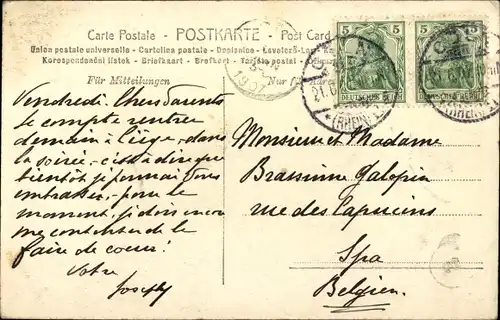 Carte Postale - POSTKARTE - Post Card
Union postale universelle - Cartolina postale - Dopisnice -
Korespondenční lístek - Briefkaart - Brefkort -
Für Mitteilungen
Nur für
5
5
5
5
DEUTSCHES REICH
DEUTSCHES REICH
(RHEIN)
(RHEIN)
1907
Vendredi. Chers Parents
je compte rentrer
demain à Liège, dans
la soirée, c'est à dire que
bientôt je pourrai vous
embrasser, pour le
moment, je dois encore
me contenter de le
faire de coeur!
Votre
Joseph
Monsieur et Madame
Brassinne Galopin
rue des Capucins
Spa
Belgien.